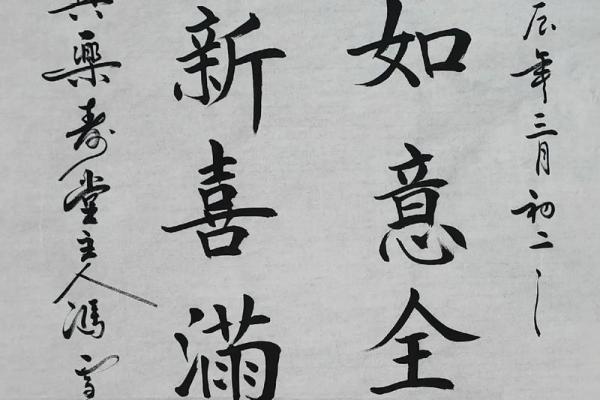 辰年三月初二之
如意全
新喜滿
樂寿堂主人馮雪